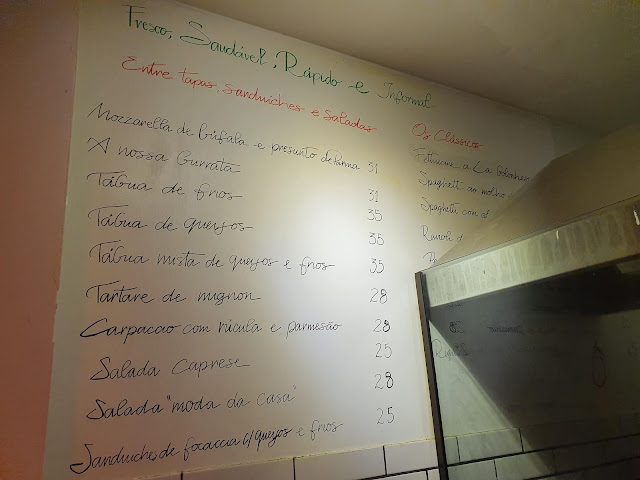 Fresco, Saudável, Rápido e Informal
Entre tapas sanduiches e Saladas
Mozzarella de búfala e presunto de Parma 31
A nossa Burrata 31
Tábua de frios 35
Tábua de queijos 35
Tábua mista de queijos e frios 35
Tartare de mignon 28
Carpacao com rúcula e parmesão 28
Salada Caprese 25
Salada "moda da casa" 28
Sanduiches de focaccia c/ queijos e frios 25
Os Clássicos
Fetuccine a La
Spaghetti ao molho
Spaghetti com
Ravioli